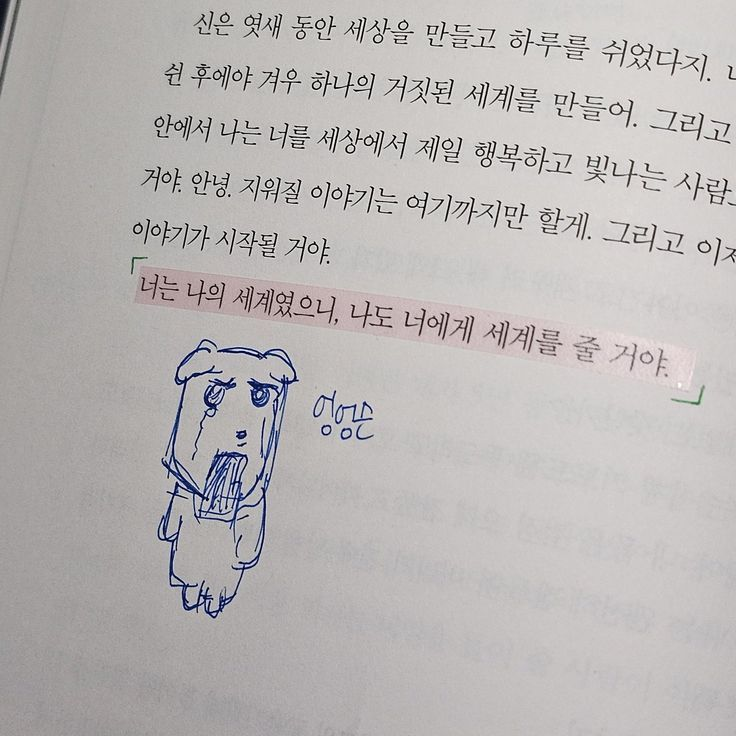 신은 엿새 동안 세상을 만들고 하루를 쉬었다지.
쉰 후에야 겨우 하나의 거짓된 세계를 만들어. 그리고
안에서 나는 너를 세상에서 제일 행복하고 빛나는
거야. 안녕. 지워질 이야기는 여기까지만 할게. 그리고
이야기가 시작될 거야.
너는 나의 세계였으니, 나도 너에게 세계를 줄 거야.
엉엉슨